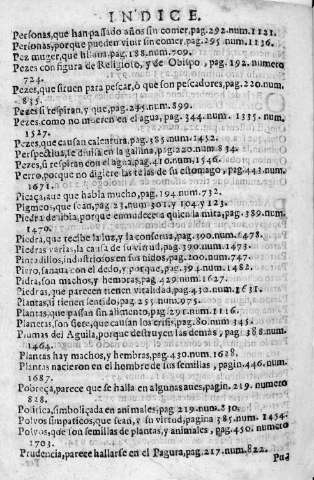 INDICE.
Personas, que han passado años sin comer, pag. 292. num. 1121.
Personas, porque pueden viuir sin comer, pag. 295 num. 1136.
Pez muger, que hilaua, pag. 188. num. 709.
Pezes con figura de Religioso, y de Obispo, pag. 192. numero
724.
Pezes, que siruen para pescar, ò que son pescadores, pag. 220. num.
835.
Pezes si respiran, y que, pag. 235. num. 899.
Pezes como no mueren en el agua, pag. 344. num. 1335. num.
1527.
Pezes, que causan calentura, pag. 385. num. 1452.
Perspectiua, se diuisa en la gallina, pag. 220. num. 834.
Pezes, si respiran con el agua, pag. 410. num. 1546.
Perro, porque no digiere las telas de su estomago, pag. 443. num.
1671.
Picaça, aue que habla mucho, pag. 194. num. 732.
Pigmeos, que sean, pag. 23. num. 301. y 104. y 123.
Piedra de ibia, porque enmudece a quien la mira, pag. 389. num.
1470.
Piedra, que recibe la luz, y la conserua, pag. 390. num. 1478.
Piedras varias, la causa de su virtud, pag. 390. num. 1473.
Pintadillos, industriosos en sus nidos, pag. 200. num. 747.
Pirro, sanaua con el dedo, y porque, pag. 394. num. 1482.
Piedras, son machos, y hembras, pag. 429. num. 1627.
Piedras, que parecen tienen vitalidad, pag. 430. num. 1631.
Plantas si tienen sentido, pag. 255. num. 975.
Plantas, que passan sin alimento, pag. 291. num. 1116.
Planetas, son siete, que causan los crisis, pag. 80. num. 345.
Plumas del Aguila, porque destruyen las demàs, pag. 388. num.
1464.
Plantas hay machos, y hembras, pag. 430. num. 1628.
Plantas nacieron en el hambre de sus semillas, pagin. 446. num.
1687.
Pobreça, parece que se halla en algunas aues, pagin. 219. numero
828.
Politica, simboliçada en animales, pag. 219. num. 830.
Polvos simpaticos, que sean, y su virtud, pagina 385. num. 1454.
Polvos, que son semillas de plantas, y animales, pag. 450. numero
1703.
Prudencia, parece hallarse en el Pagura, pag. 217. num. 822.